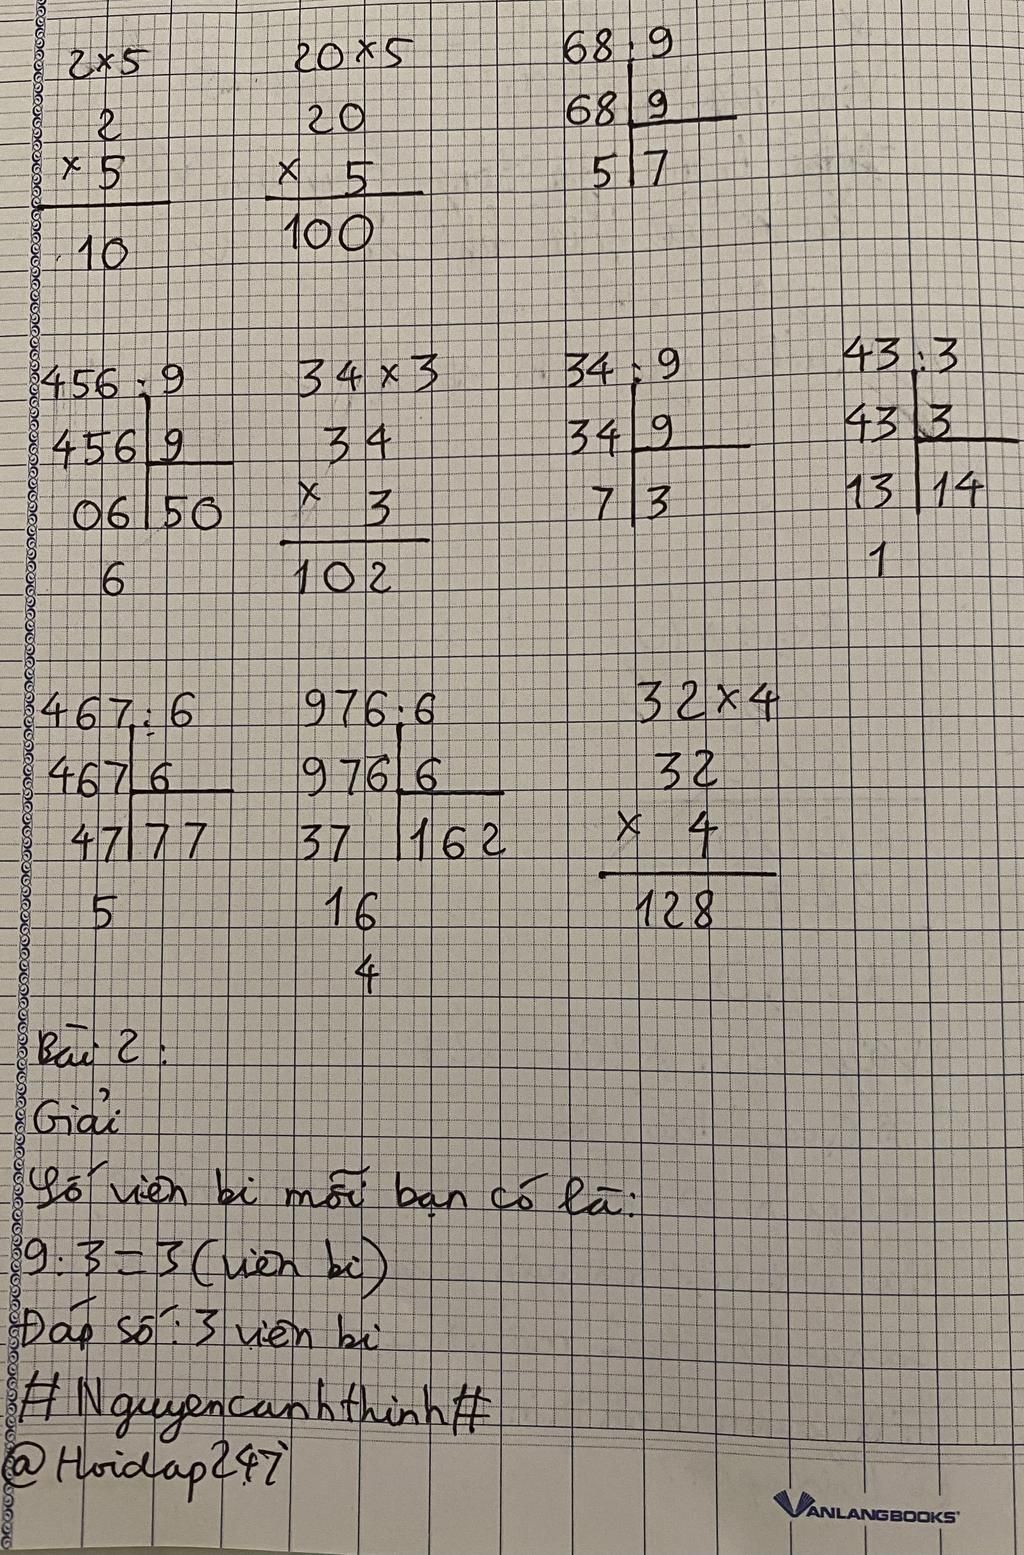 2×5 20×5 68:9
2 20 68 9
× 5 × 5 5 7
10 100
456:9 34×3 34:9 43:3
456 9 34 34 9 43 3
06 50 × 3 7 3 13 14
6 102 1
467:6 976:6 32×4
467 6 976 6 32
47 77 37 162 × 4
5 16 128
4
Bài 2:
Giải
Số viên bi mỗi bạn có là:
9:3=3(viên bi)
Đáp số: 3 viên bi
#Nguyencanhthinh#
@Hoidap247
VANLANGBOOKS